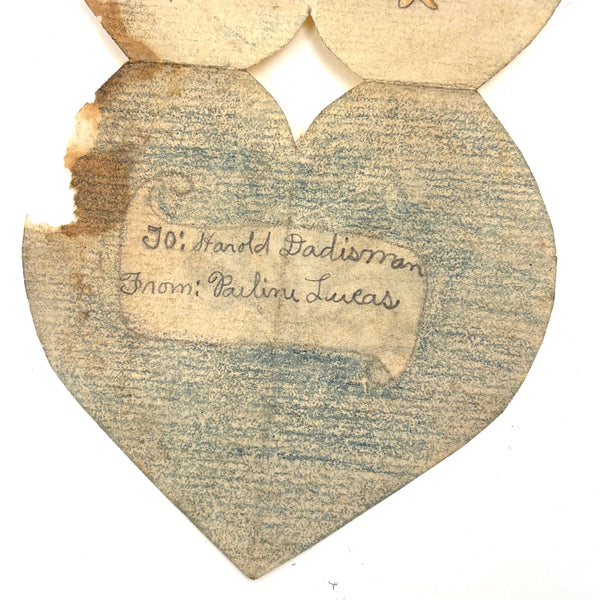 To: Harold Dadisman
From: Pauline Lucas